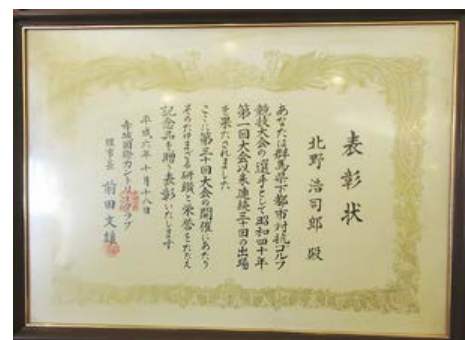 表彰状
北野浩司郎 殿
あなたは群馬県下都市対抗ゴルフ
競技大会の選手として昭和四十年
第一回大会以来連続三十回の出場
を果たされました
ここに第三十回大会の開催にあたり
そのたゆまざる研鑽と栄誉をたたえ
記念品を贈り表彰いたします
平成六年十月十八日
赤城国際カントリークラブ
理事長 前田文雄